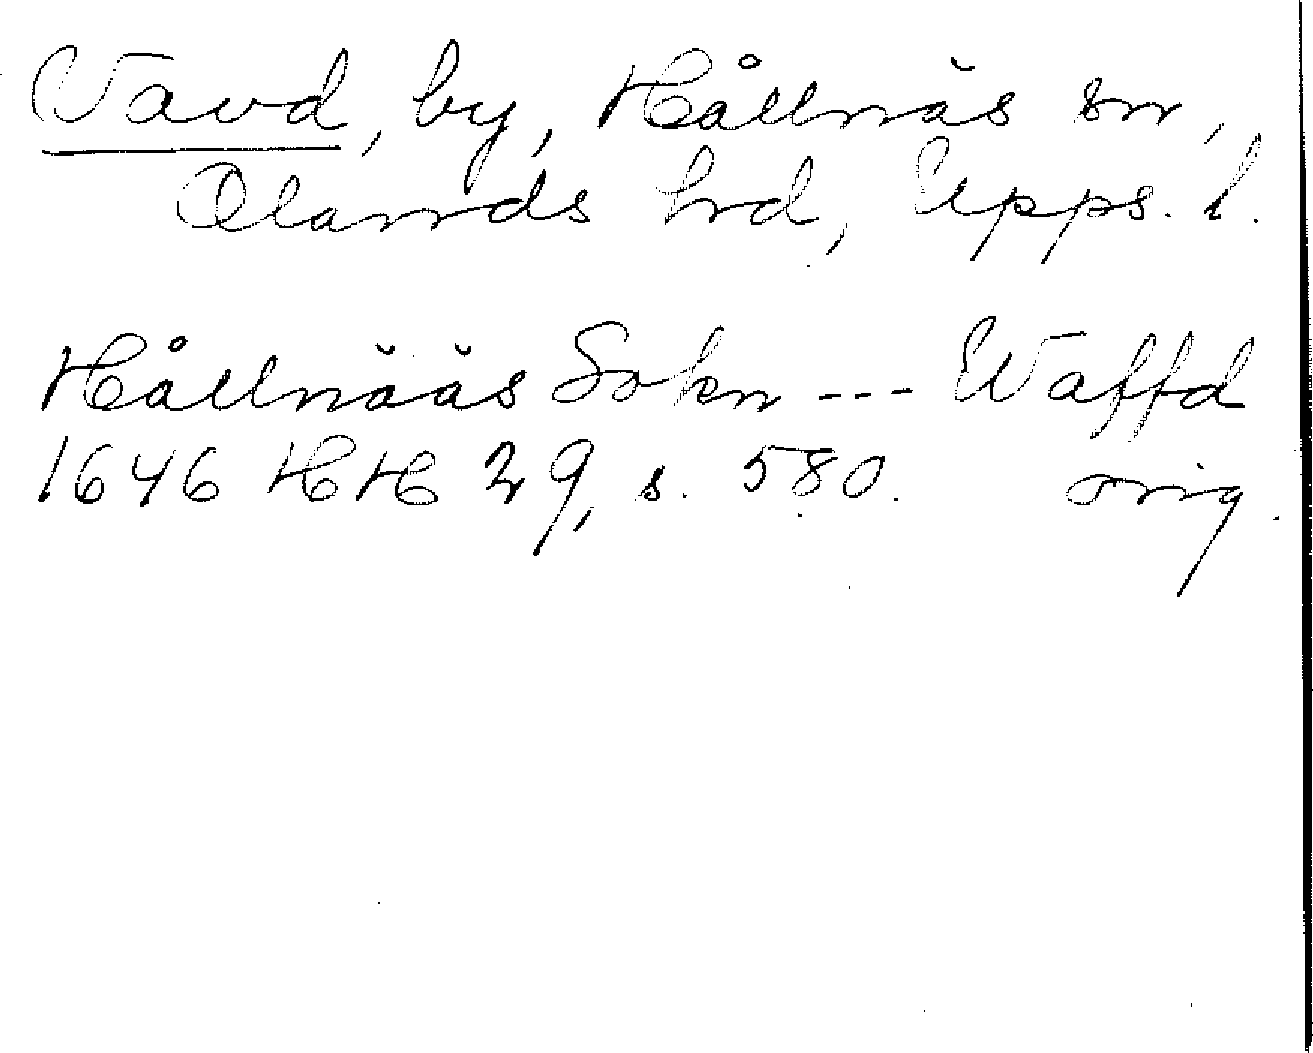 Vavd, by, Hållnäs sn,
Olands hrd, Upps. l.
Hållnääs Sokn --- Waffd
1646 HH 29, s. 580. orig.